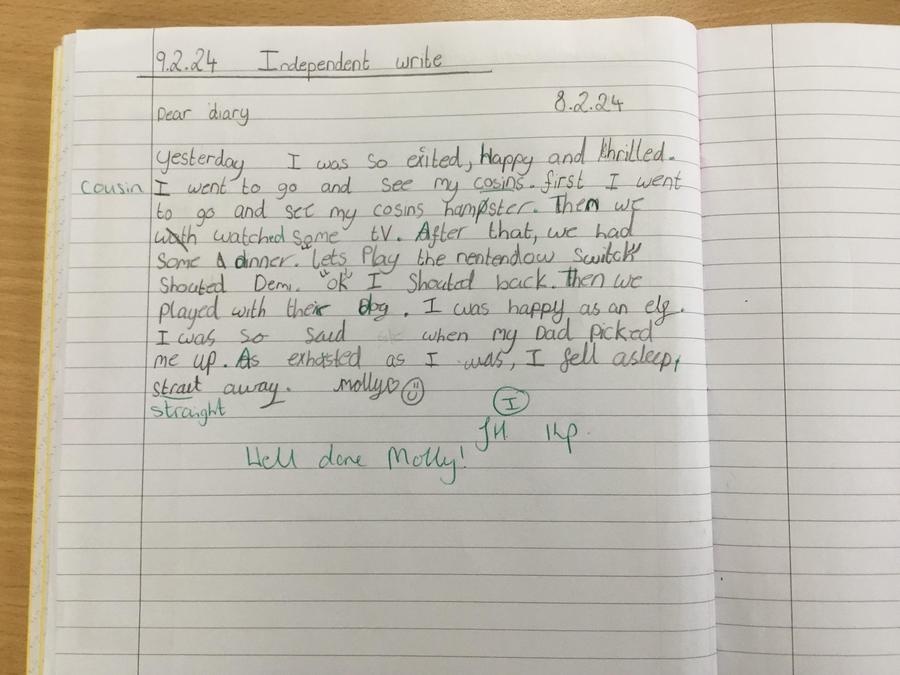 9.2.24 Independent write
Dear diary 8.2.24
Yesterday I was so exited, Happy and thrilled.
cousin I went to go and see my cosins. first I went
to go and see my cosins hampster. Then we
watched some tV. After that, we had
Some dinner. "Lets Play the nentendow Switch"
Shouted Demi. "ok" I Shouted back. Then we
played with their dog. I was happy as an elf.
I was so said when my Dad picked
me up. As exhasted as I was, I fell asleep,
strait away. Molly♡☺
straight I
JH 1hp.
Well done Molly!